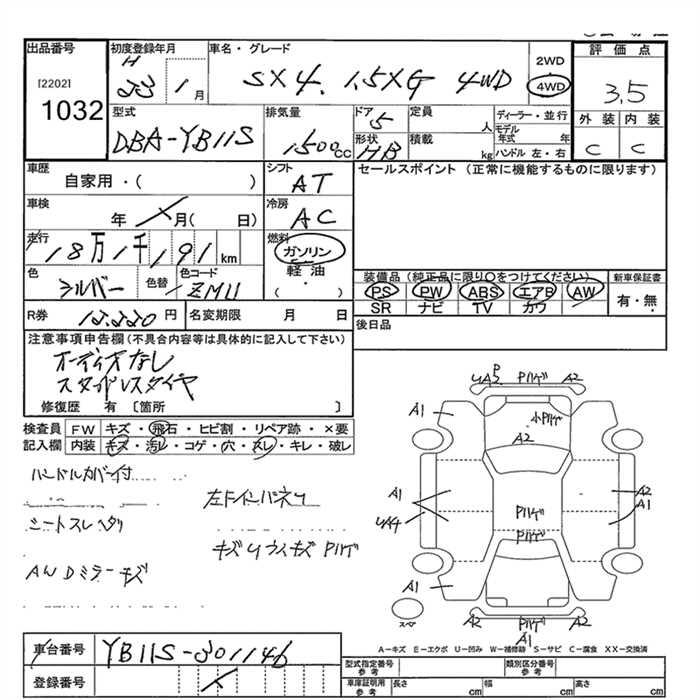 出品番号 初度登録年月 車名・グレード 2WD 評価点
[2202] H 23 1月 SX4 1.5XG 4WD 4WD 3.5
1032 型式 排気量 ドア 定員 ディーラー・並行 外装 内装
DBA-YB11S 1500cc 5 人 モデル年式 年 C C
形状 HB 積載 kg ハンドル 左・右
車歴 シフト セールスポイント (正常に機能するものに限ります)
自家用・( ) AT
車検 冷房
年 月( 日) AC
走行 燃料
18万1千191km ガソリン
色 色替 色コード 軽油 装備品 (純正品に限り○をつけてください) 新車保証書
シルバー ZMU ( ・ ) PS PW ABS エアB AW 有・無
SR ナビ TV カワ
R券 12,220円 名変期限 月 日 後日品
注意事項申告欄(不具合内容等は具体的に記入して下さい)
オーディオなし
スタッドレスタイヤ
修復歴 有 〔箇所 〕
検査員 FW キズ・飛石・ヒビ割・リペア跡・×要
記入欄 内装 キズ・汚レ・コゲ・穴・スレ・キレ・破レ
ハンドルカバー付
シートスレヘタリ
AWDミラーキズ
左ドインパネウ
キズウスキズPハゲ
UA3 P Pハゲ A2
A1 小Pハゲ
A2
A1 A2
UA4 Pハゲ A1
Pハゲ
A1
スペア A2 Pハゲ A2
A1
A-キズ E-エクボ U-凹み W-補修跡 S-サビ C-腐食 XX-交換済
車台番号 YB11S-301146 型式指定番号 参考 類別区分番号 参考
登録番号 車庫証明用 参考 長さ cm 幅 cm 高さ cm